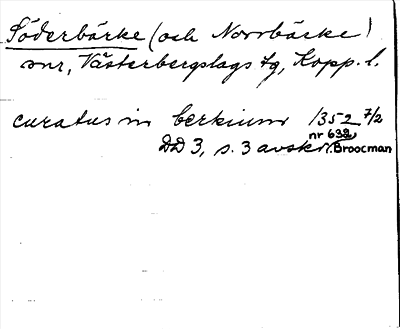 Söderbärke (och Norrbärke)
snr, Västerbergslags tg, Kopp. l.
curatus in berkium 1352 7/2
nr 632,
DD 3, s. 3 avskr. Broocman